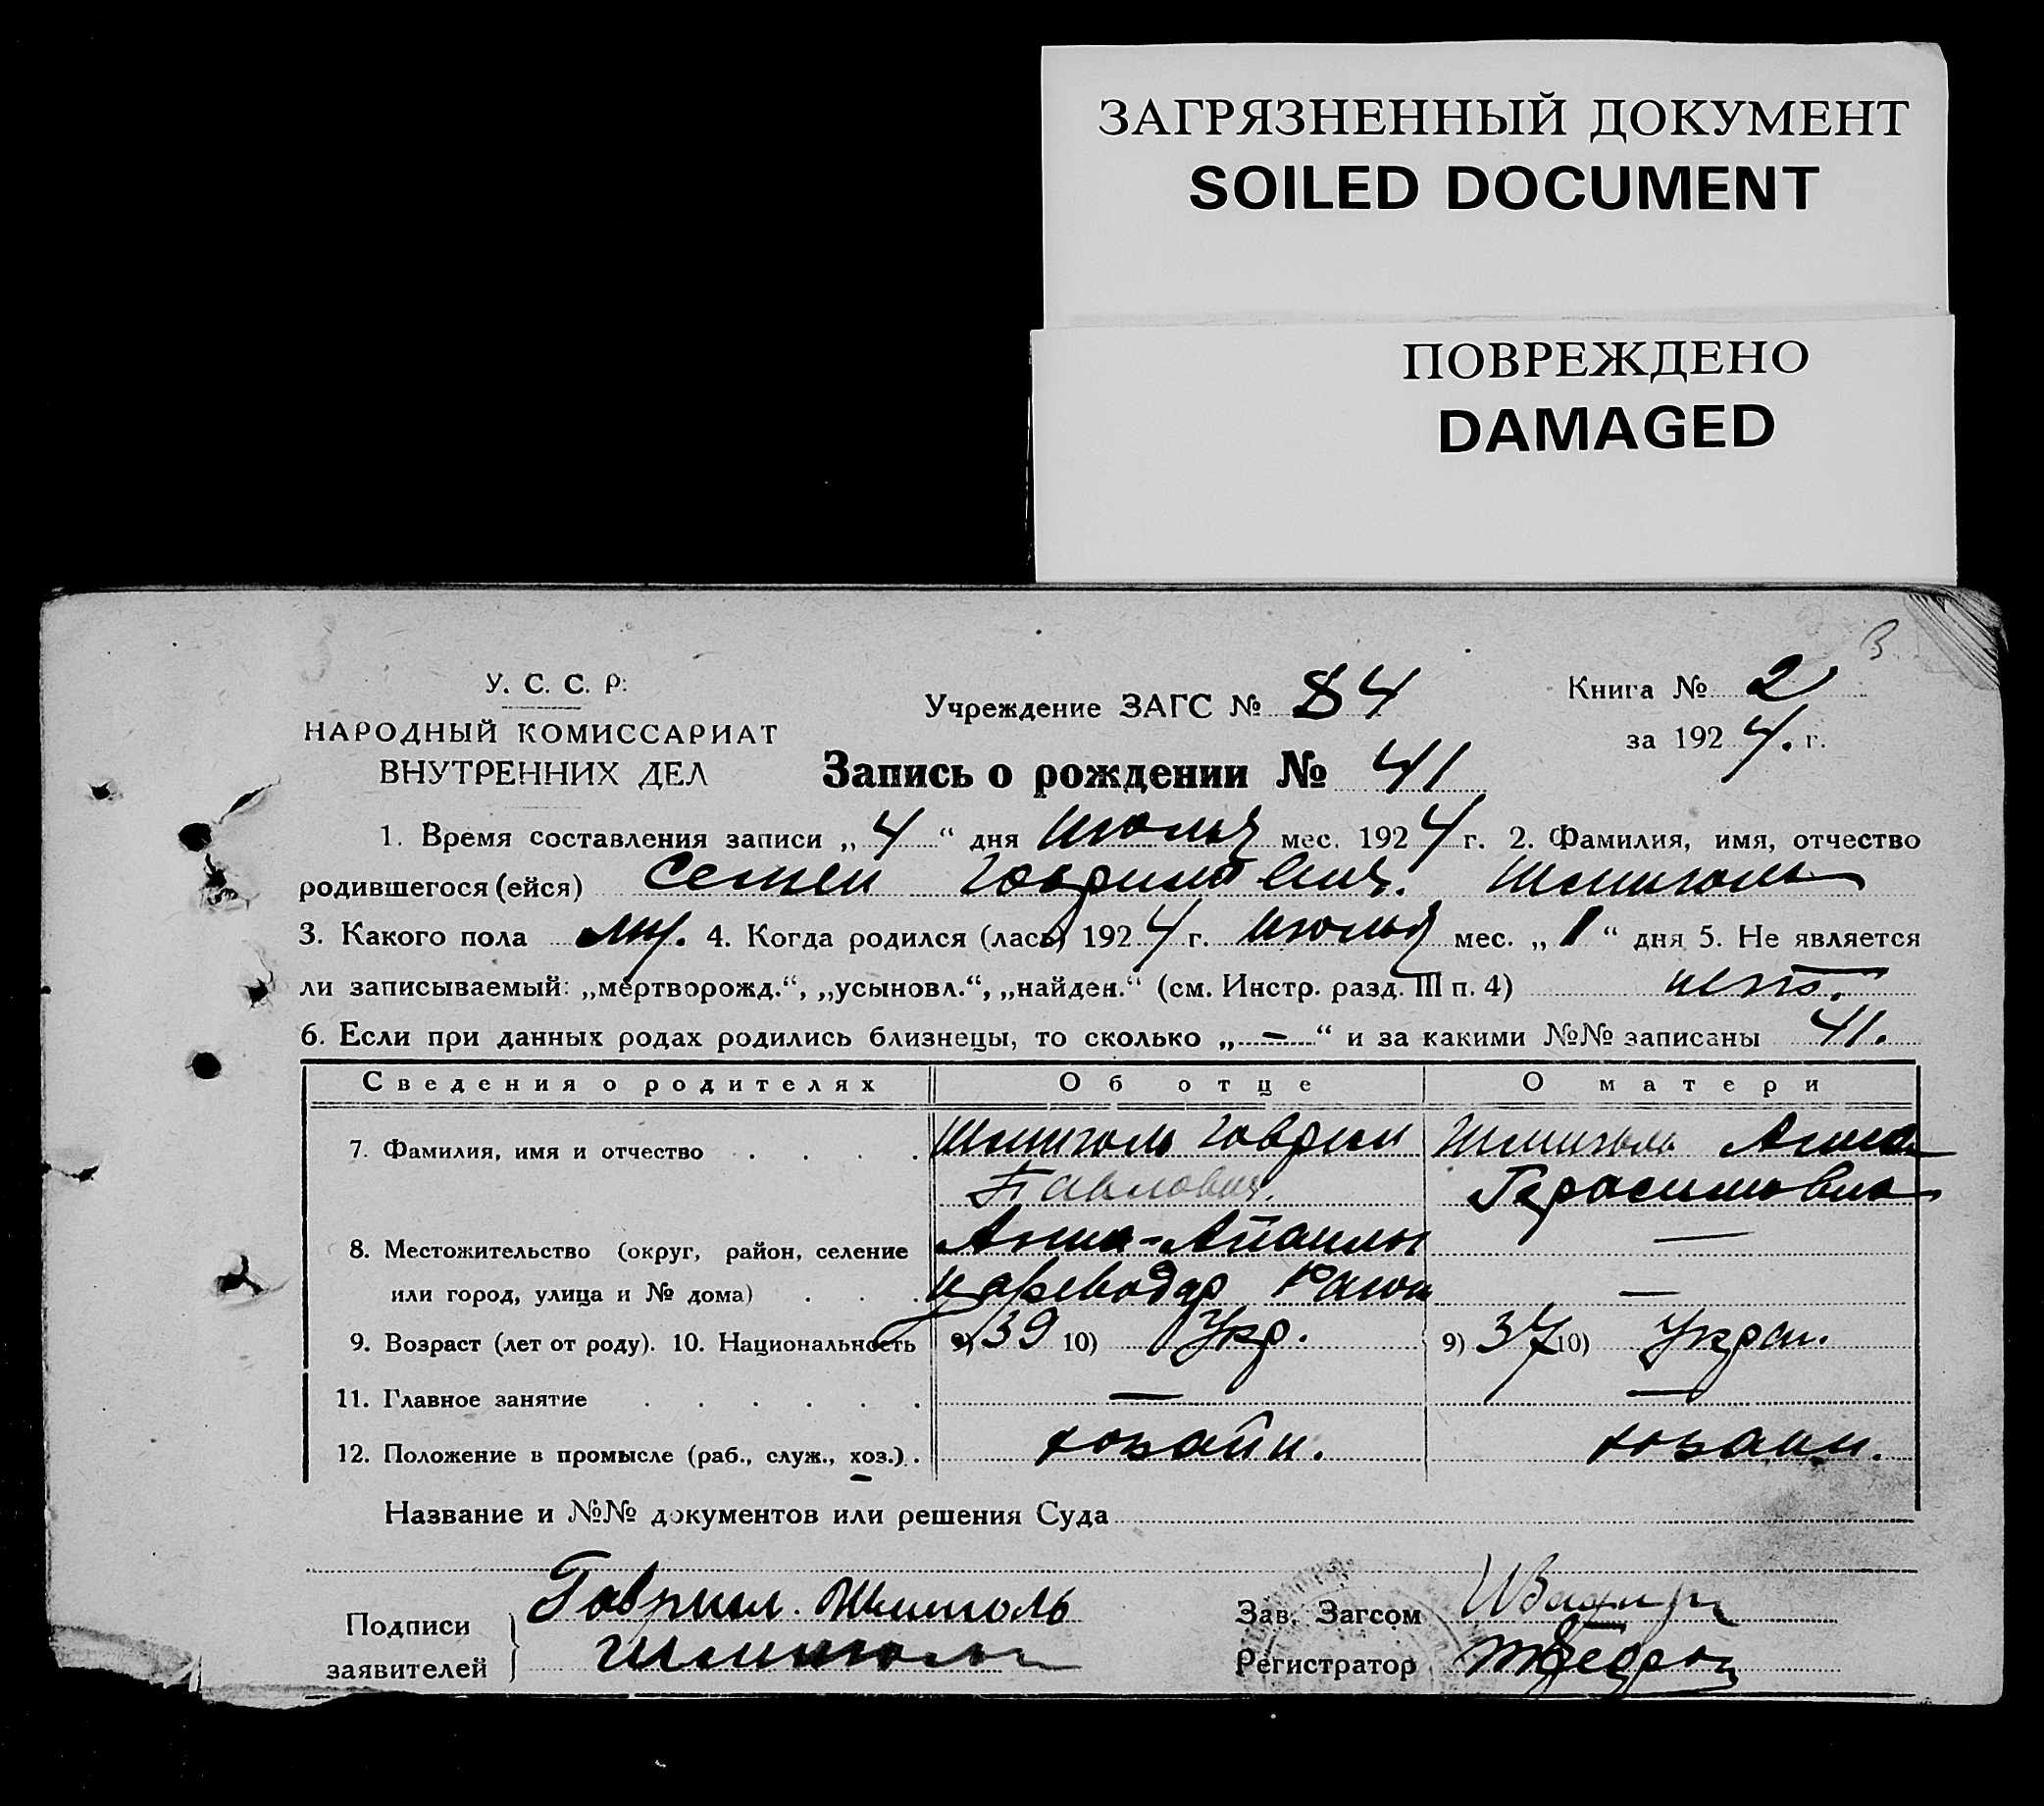 ЗАГРЯЗНЕННЫЙ ДОКУМЕНТ
SOILED DOCUMENT
ПОВРЕЖДЕНО
DAMAGED
У. С. С. Р.
НАРОДНЫЙ КОМИССАРИАТ
ВНУТРЕННИХ ДЕЛ
Учреждение ЗАГС № 84
Книга № 2
за 1924. г.
Запись о рождении № 41
1. Время составления записи „4“ дня июля мес. 1924 г. 2. Фамилия, имя, отчество
родившегося (ейся) Семен Гаврилович. Шмиголь
3. Какого пола муж. 4. Когда родился (лась) 1924 г. июля мес. „1“ дня 5. Не является
ли записываемый: „мертворожд.“, „усыновл.“, „найден.“ (см. Инстр. разд. III п. 4) нет.
6. Если при данных родах родились близнецы, то сколько „-“ и за какими №№ записаны 41.
Сведения о родителях Об отце О матери
7. Фамилия, имя и отчество . . . . Шмиголь Гаврил Шмиголь Анна
Павлович. Герасимовна
8. Местожительство (округ, район, селение —
или город, улица и № дома) . . . —
9. Возраст (лет от роду). 10. Национальность 9) 39 10) Укр. 9) 37 10) Украи.
11. Главное занятие . . . . . . — —
12. Положение в промысле (раб., служ., хоз.) . хозаин. хозаин.
Название и №№ документов или решения Суда
Подписи
заявителей
Гаврил. Шмиголь
Шмиголь
Зав. Загсом
Регистратор